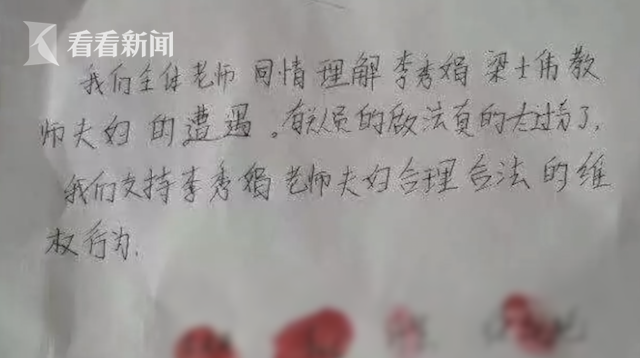 看看新闻
我们全体老师 同情理解 李秀娟 梁士伟教
师夫妇的遭遇。有关人员的做法真的太过分了,
我们支持李秀娟老师夫妇合理合法的维
权行为.